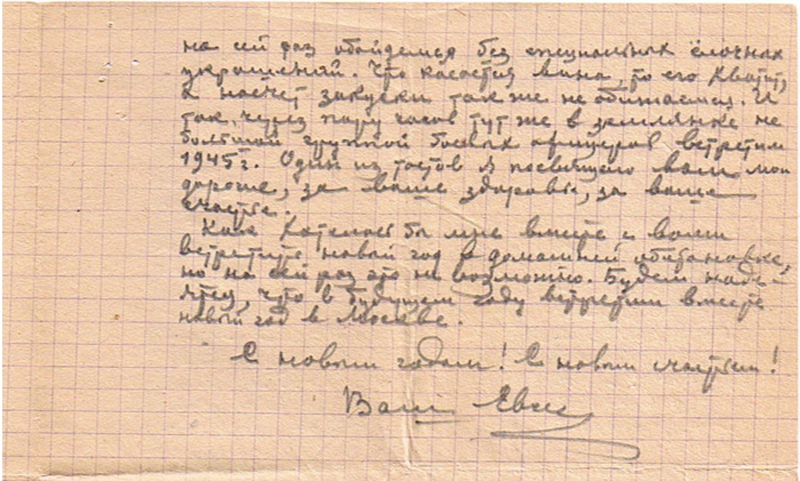 на сей раз обойдемся без специальных ёлочных
украшений. Что касается вина, то его хватит,
а насчет закуски так же не обижаемся. И
так, через пару часов тут же в землянке не
большой группой боевых офицеров встретим
1945 г. Один из тостов я посвящаю вам мои
дорогие, за ваше здоровье, за ваше
счастье.
Как хотелось бы мне вместе с вами
встретить новый год в домашней обстановке,
но на сей раз это не возможно. Будем наде-
яться, что в будущем году встретим вместе
новый год в Москве.
С новым годом! С новым счастьем!
Ваш